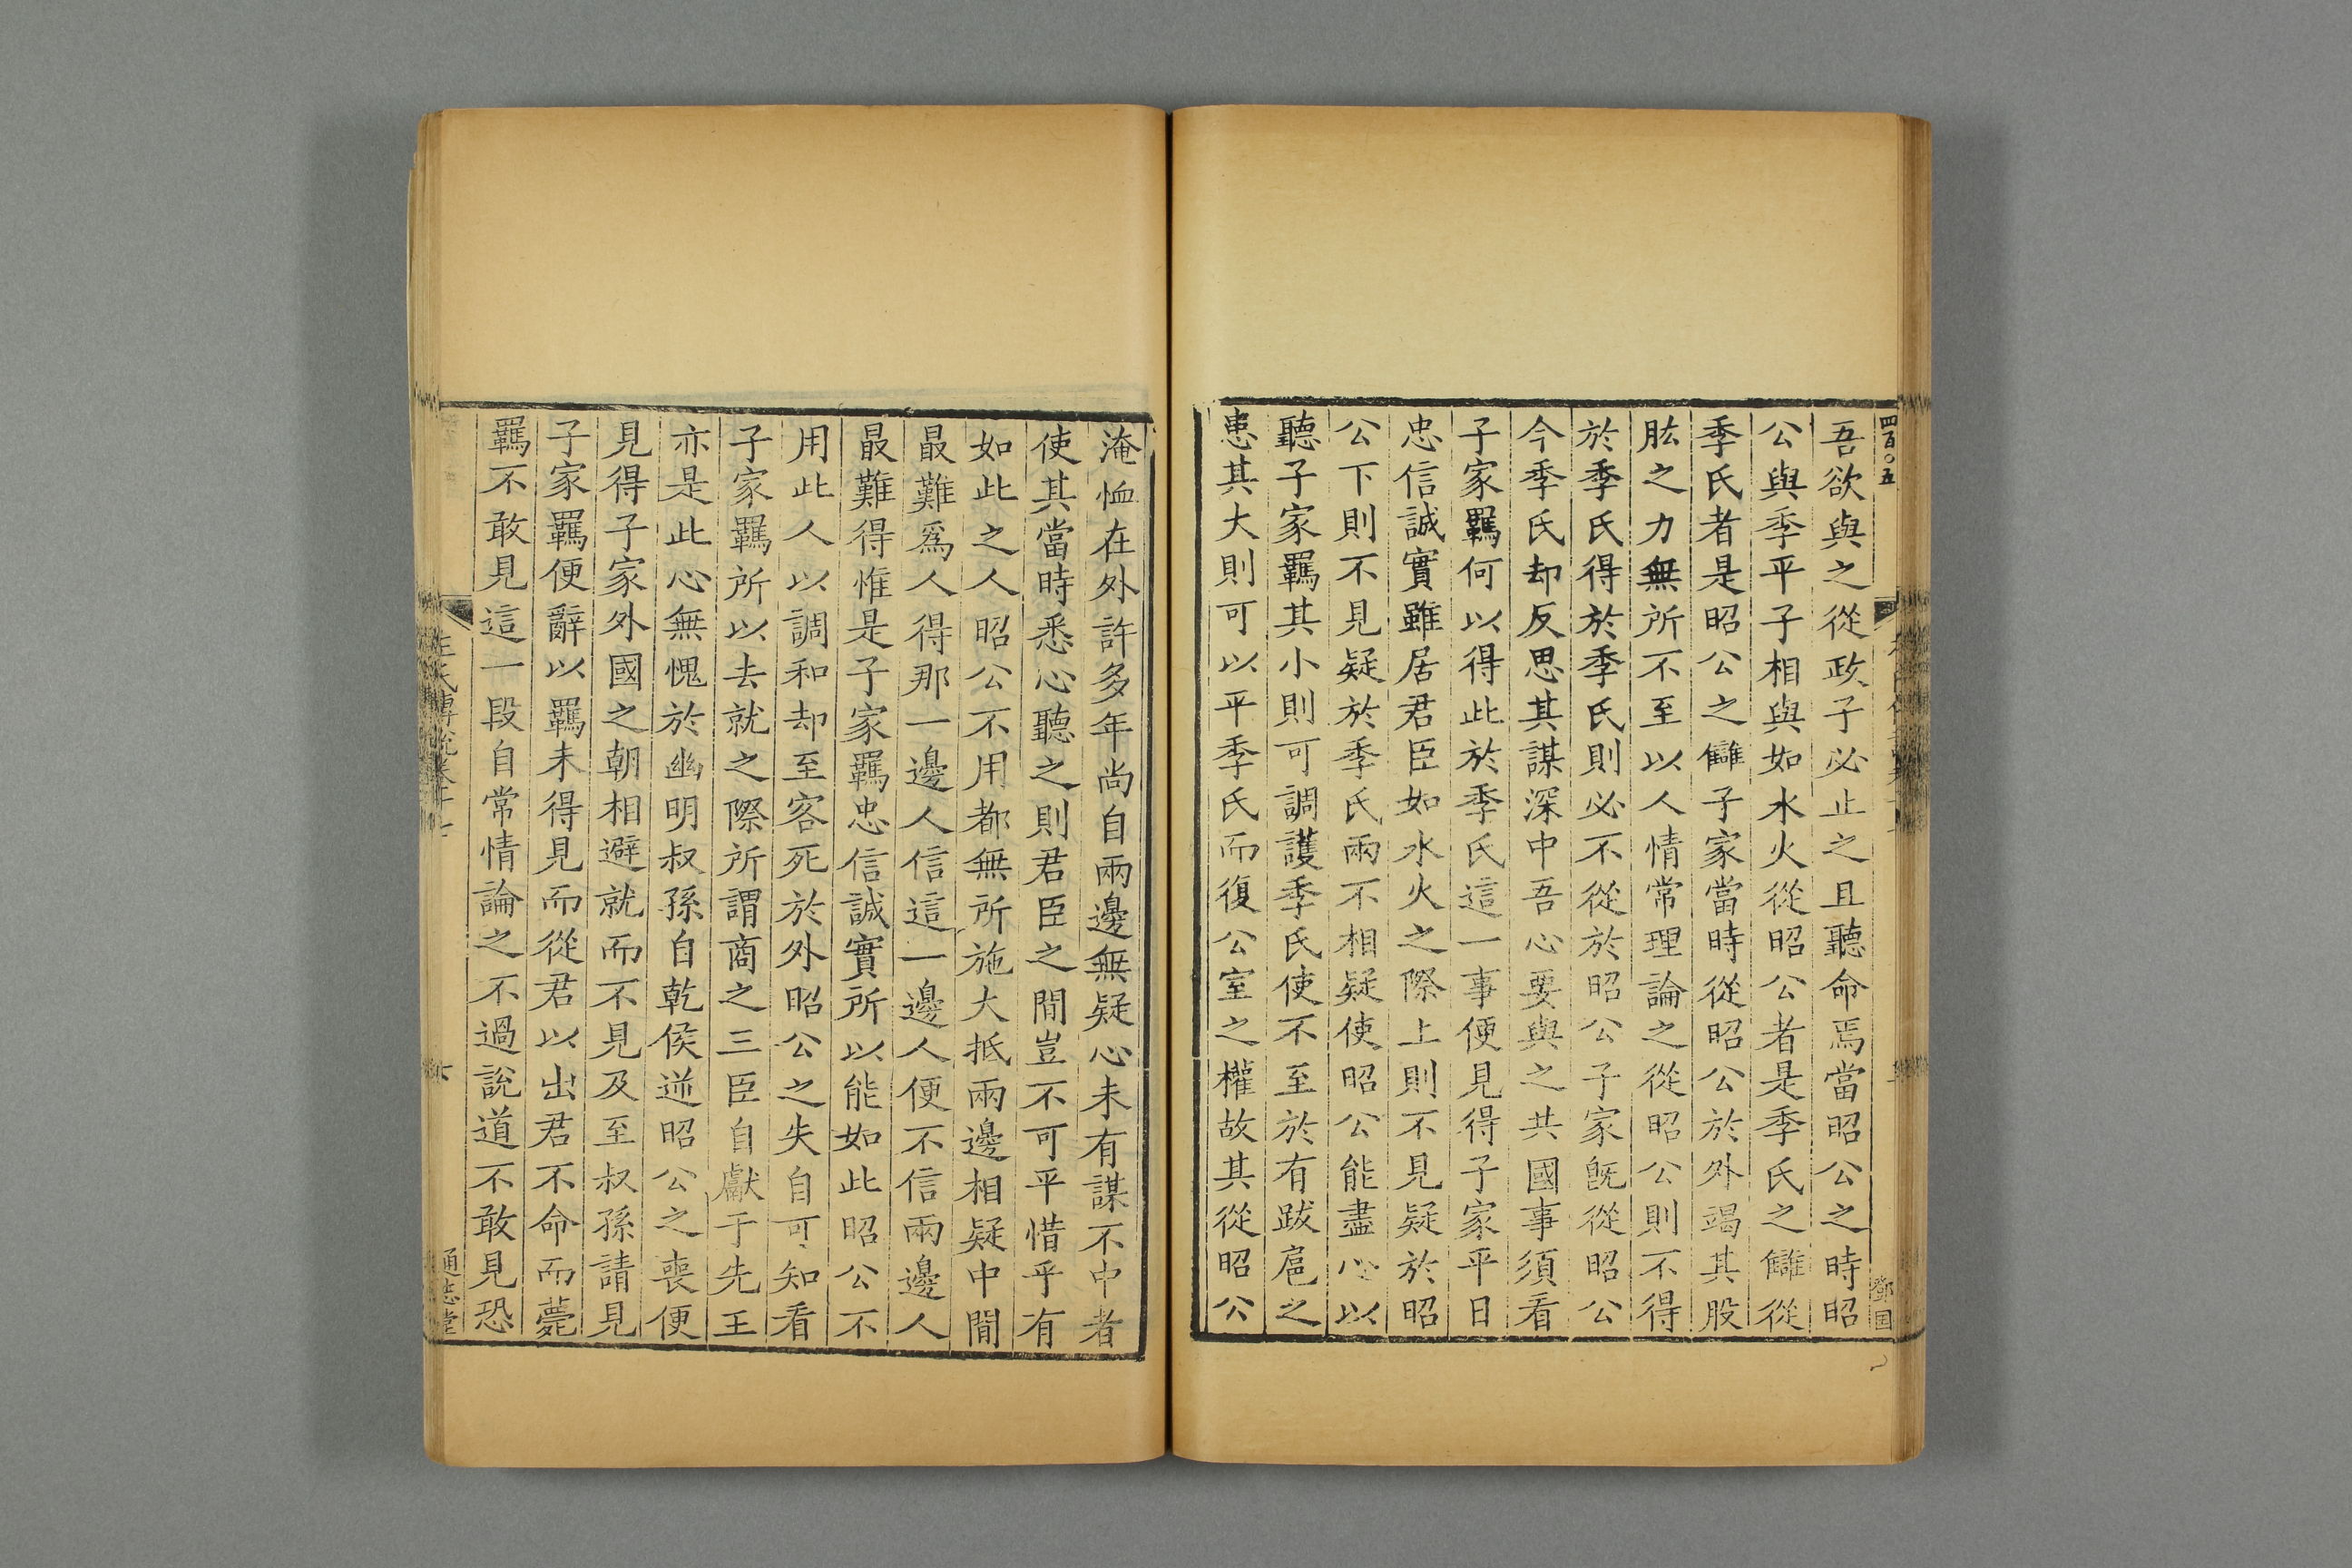 四百〇五
吾欲與之從政子必止之且聽命焉當昭公之時昭
公與季平子相與如水火從昭公者是季氏之讎從
季氏者是昭公之讎子家當時從昭公於外竭其股
肱之力無所不至以人情常理論之從昭公則不得
於季氏得於季氏則必不從於昭公子家旣從昭公
今季氏却反思其謀深中吾心要與之共國事須看
子家羈何以得此於季氏這一事便見得子家平日
忠信誠實雖居君臣如水火之際上則不見疑於昭
公下則不見疑於季氏兩不相疑使昭公能盡心以
聽子家羈其小則可調護季氏使不至於有跋扈之
患其大則可以平季氏而復公室之權故其從昭公
鄧国
淹恤在外許多年尚自兩邊無疑心未有謀不中者
使其當時悉心聽之則君臣之間豈不可平惜乎有
如此之人昭公不用都無所施大抵兩邊相疑中間
最難爲人得那一邊人信這一邊人便不信兩邊人
最難得惟是子家羈忠信誠實所以能如此昭公不
用此人以調和却至客死於外昭公之失自可知看
子家羈所以去就之際所謂商之三臣自獻于先王
亦是此心無愧於幽明叔孫自乾侯逆昭公之喪便
見得子家外國之朝相避就而不見及至叔孫請見
子家羈便辭以羈未得見而從君以出君不命而薨
羈不敢見這一段自常情論之不過說道不敢見恐
左氏傳說卷十七
通志堂